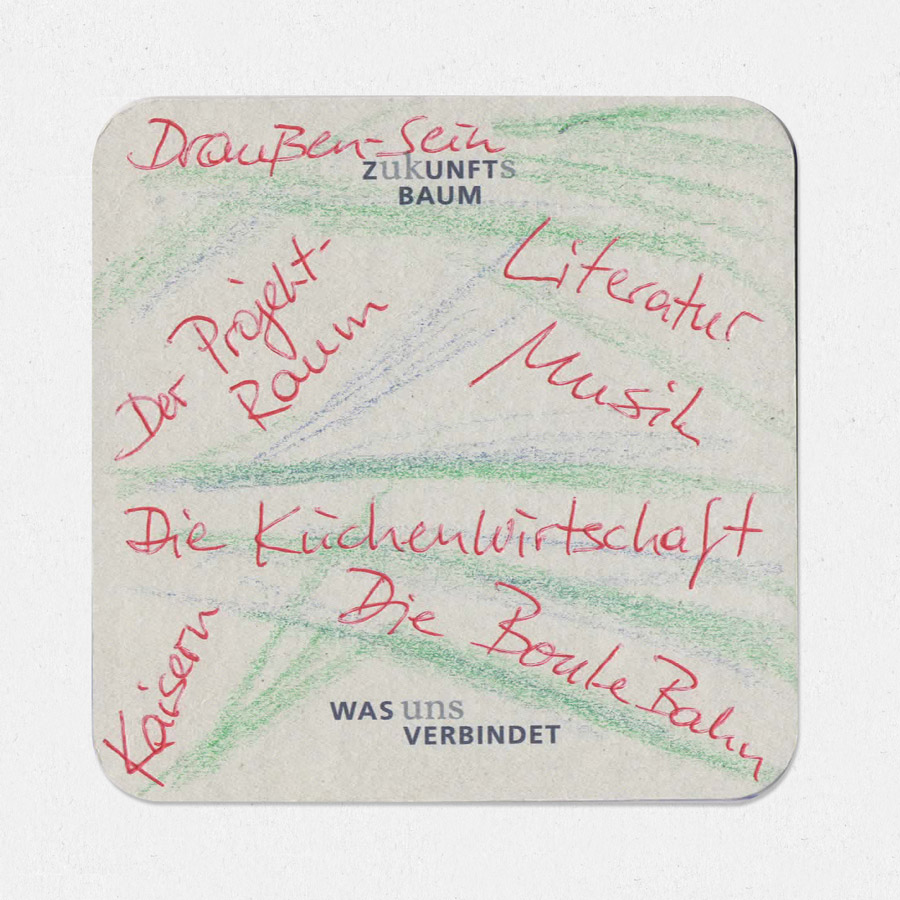 Draußen-Sein
ZukUNFTs
BAUM
Literatur
Musik
Der Projekt-
Raum
Die Küchenwirtschaft
Die Boule Bahn
Kaisern
WAS uns
VERBINDET